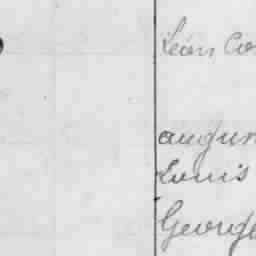 Léon Co
augus
Louis
George